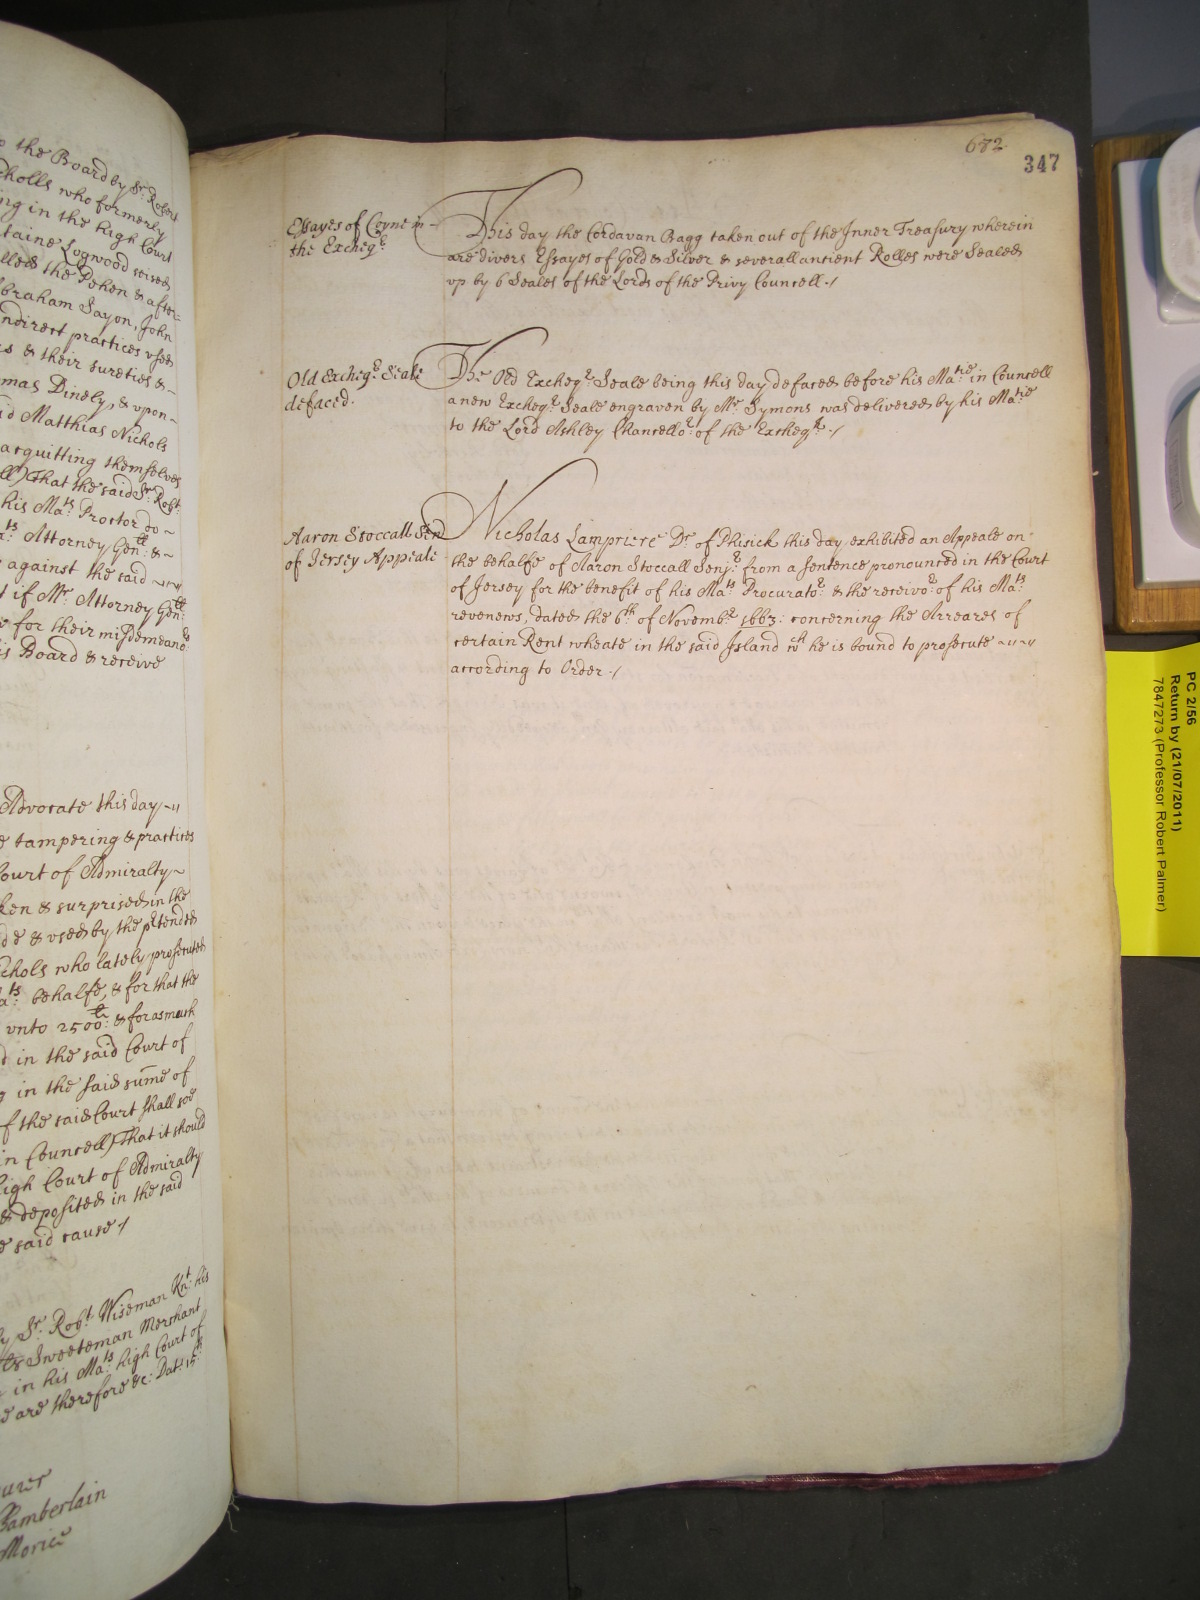 the Board by Sr. Robert
cholls who formerly
ng in the high Court
taine Logwood seised
lled the Peken & after=
Abraham Sayon, John
ndirect practices vsed
s & their sureties &-
mas Dinely, & vpon-
id Matthias Nichols
acquitting themselves
ll) That the said Sr. Robt.
his Mats. Proctor do ~
ts. Attorney Genll. &-
against the said
t if Mr. Attorney Genll.
for their misdemeanors
is Board & receive
Advocate this day
e tampering & practices
Court of Admiralty~
ken & surprised in the
de & vsed by the ptended
chols who lately prosecuted
ats. behalfe, & for that the
vnto 2500li. & forasmuch
d in the said Court of
in the said sume of
f the said Court shall soe
in Councell) That it should
high Court of Admiralty
& deposited in the said
e said cause ./
Sr. Robt. Wiseman Knt. his
Sweeteman Merchant
in his Mats. high Court of
are therefore &c: Dat. 15th.
urer
Chamberlain
Morice
682
347
Essayes of Coyne in -
the Excheqr.
This day the Cordavan Bagg taken out of the Inner Treasury wherein
are divers Essayes of Gold & Silver & severall antient Rolles were Sealed
vp by 6 Seales of the Lords of the Privy Councell ./
Old Excheqr. Seale
defaced.
The Old Excheqr. Seale being this day defaced before his Matie in Councell
a new Excheqr. Seale engraven by Mr. Symons was delivered by his Matie
to the Lord Ashley Chancellor. of the Excheqr. ./
Aaron Stoccall Senr
of Jersey Appeale
Nicholas Lampriere Dr. of Phisick this day exhibited an Appeale on
the behalfe of Aaron Stoccall Senjr. from a sentence pronounced in the Court
of Jersey for the benefit of his Mats. Procurator. & the receivor. of his Mats.
revenews, dated the 6th. of Novembr. 1663: concerning the Arreares of
certain Rent wheate in the said Island wch he is bound to prosecute
according to Order ./
PC 2/56
Return by (21/07/2011)
7847273 (Professor Robert Palmer)